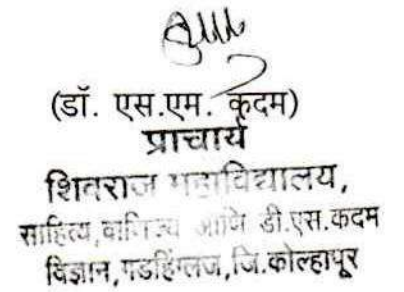 (डॉ. एस.एम. कदम)
प्राचार्य
शिवराज महाविद्यालय,
साहित्य,वाणिज्य आणि डी.एस.कदम
विज्ञान,गडहिंग्लज,जि.कोल्हापूर